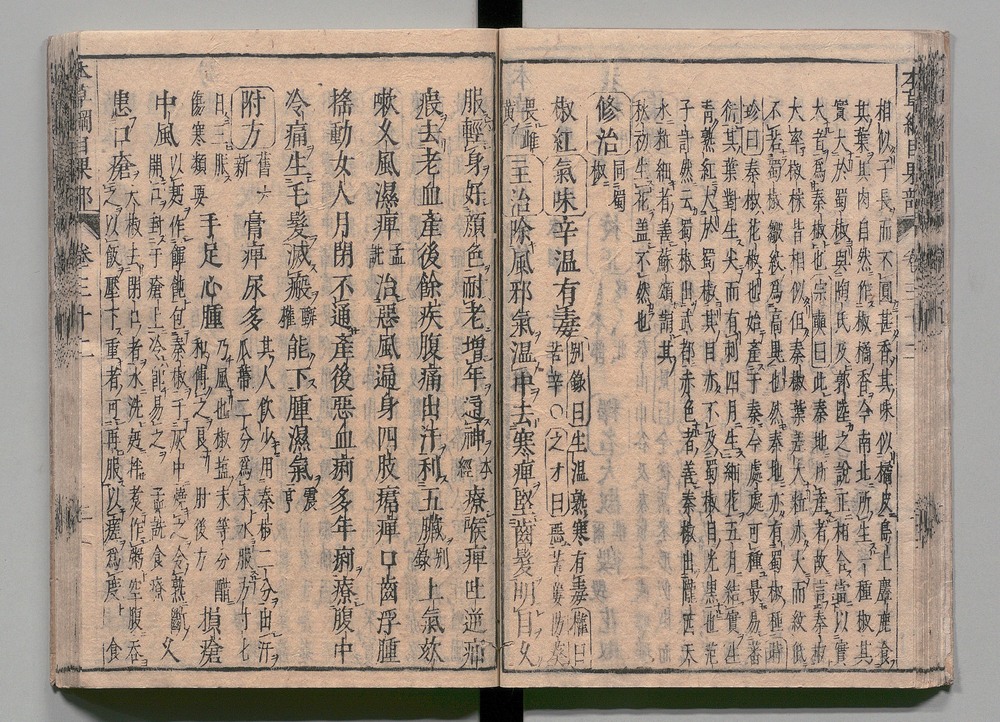 本草綱目果部 卷三十二
相似子長而不圓甚香其味似橘皮島上麞鹿食
其葉其肉自然作椒橘香今南北所生一種椒其
實大於蜀椒與陶氏及郭陸之說正相合當以實
大者爲秦椒也宗奭曰此秦地所產者故言秦椒
大率椒株皆相似但秦椒葉差大粒亦大而紋低
不若蜀椒皺紋爲高異也然秦地亦有蜀椒種時
珍曰秦椒花椒也始產于秦今處處可種最易蕃
衍其葉對生尖而有刺四月生細花五月結實生
青熟紅大於蜀椒其目亦不及蜀椒目光黑也范
子計然云蜀椒出武都赤色者善秦椒出隴西天
水粒細者善蘇頌謂其
秋初生花蓋不然也
修治 同蜀椒
椒紅 氣味辛溫有毒 別錄曰生溫熟寒有毒權曰苦辛○之才曰惡
畏雌黃 主治除風邪氣溫中去寒痺堅齒髮明目久
服輕身好顔色耐老增年通神 本經 療喉痺吐逆疝
瘕去老血產後餘疾腹痛出汗利五臟 別錄 上氣欬
嗽久風濕痺 孟詵 治惡風遍身四肢𤸷痺口齒浮腫
搖動女人月閉不通產後惡血痢多年痢療腹中
冷痛生毛髮滅瘢 甄權 能下腫濕氣 震亨
附方 舊六新 膏痺尿多 其人飲少用秦椒二分出汗瓜蔕二分爲末水服方寸七
日三服傷寒類要 手足心腫 乃風也椒鹽末等分醋和傅之良肘後方 損瘡
中風 以麪作餛飩包秦椒于灰中燒之令熟斷開口封于瘡上冷即易之孟詵食療 久
患口瘡 大椒去閉口者水洗麪拌煮作粥空腹吞之以飯壓下重者可再服以瘥爲度 食
本草綱目果部 卷三十二